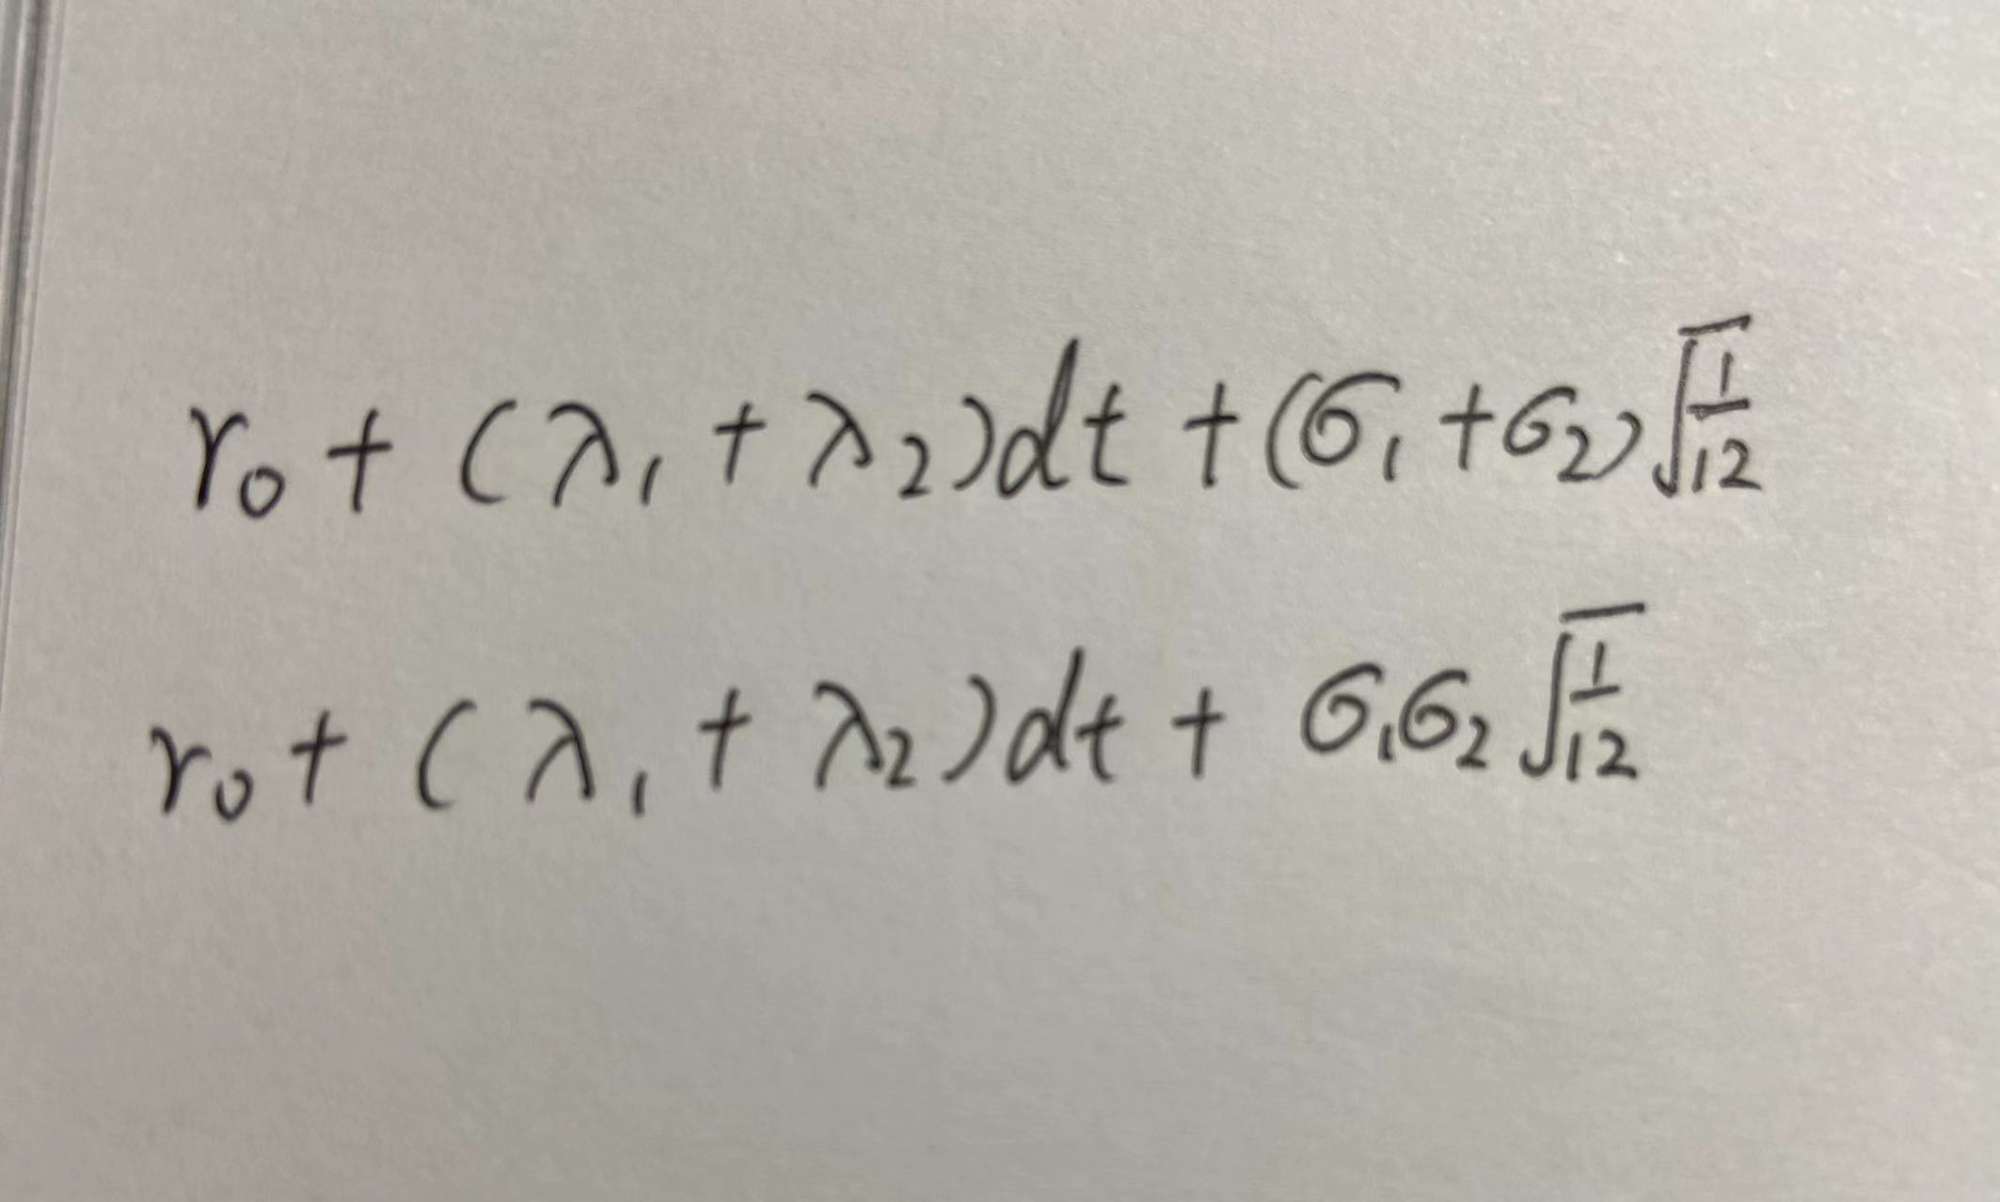 r₀ + (λ₁ + λ₂)dt + (σ₁ + σ₂)√(1/12)
r₀ + (λ₁ + λ₂)dt + σ₁σ₂√(1/12)